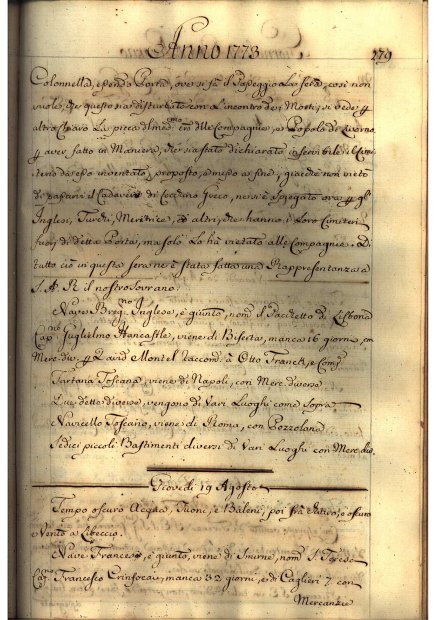 Anno 1773
279
Colonnella, e detta Porta, ove si fà il Passeggio La sera, così non
vuole, che questo sia disturbato con L'incontro de i Morti; si vede p
altro chiaro La picca
alle Compagnie, e Popolo di Livorno
p aver fatto in Maniera, che sia stato dichiarato inservibile il Cimi
terio da esso inventato, proposto, e messo a fine, giacchè non vieta
di passarvi il Cadavere di Greco, nè si è spiegato ora p gl'
Inglesi, Turchi, Meretrice, ed altri, che hanno i Loro Cimiteri
fuori di detta Porta, ma solo Lo hà vietato alle Compagnie. Di
tutto ciò in questa sera ne è stata fatta una Rappresentanza a
S. A. R. il nostro Sovrano.
Nave Inglese, è giunto, nom. il Pacchetto di Lisbona
Cap. Guglielmo Hancastle, viene di Biserta, manca 16 giorni, con
Merc. div. p Laird Montel Raccom. à Otto Franck, e Comp.
Tartana Toscana, viene di Napoli, con Merc. diverse
Due dette diverse, vengono di Vari Luoghi come Sopra
Navicello Toscano, viene di Roma, con Pozzolana
Sedici piccoli Bastimenti diversi di Vari Luoghi con Merc. div.
Giovedì 19 Agosto
Tempo oscuro Acqua, Tuoni, e Baleni, poi oscuro
Vento a Libeccio.
Nave Francese, è giunto, viene di Smirne, nom. S. Teresa
Cap. Francesco manca 32 giorni, e di Caglieri 7 con
Mercanzie